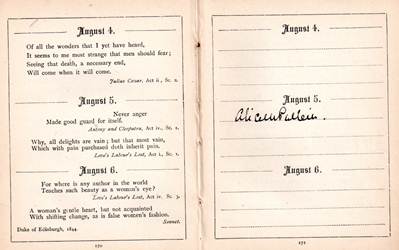 August 4.
Of all the wonders that I yet have heard,
It seems to me most strange that men should fear;
Seeing that death, a necessary end,
Will come when it will come.
Julius Cæsar, Act ii., Sc. 2.
August 5.
Never anger
Made good guard for itself.
Antony and Cleopatra, Act iv., Sc. 1.
Why, all delights are vain; but that most vain,
Which with pain purchased doth inherit pain.
Love's Labour's Lost, Act i., Sc. 1.
August 6.
For where is any author in the world
Teaches such beauty as a woman's eye?
Love's Labour's Lost, Act iv. Sc. 3.
A woman's gentle heart, but not acquainted
With shifting change, as is false women's fashion.
Sonnet.
Duke of Edinburgh, 1844.
170
August 4.
August 5.
August 6.
171